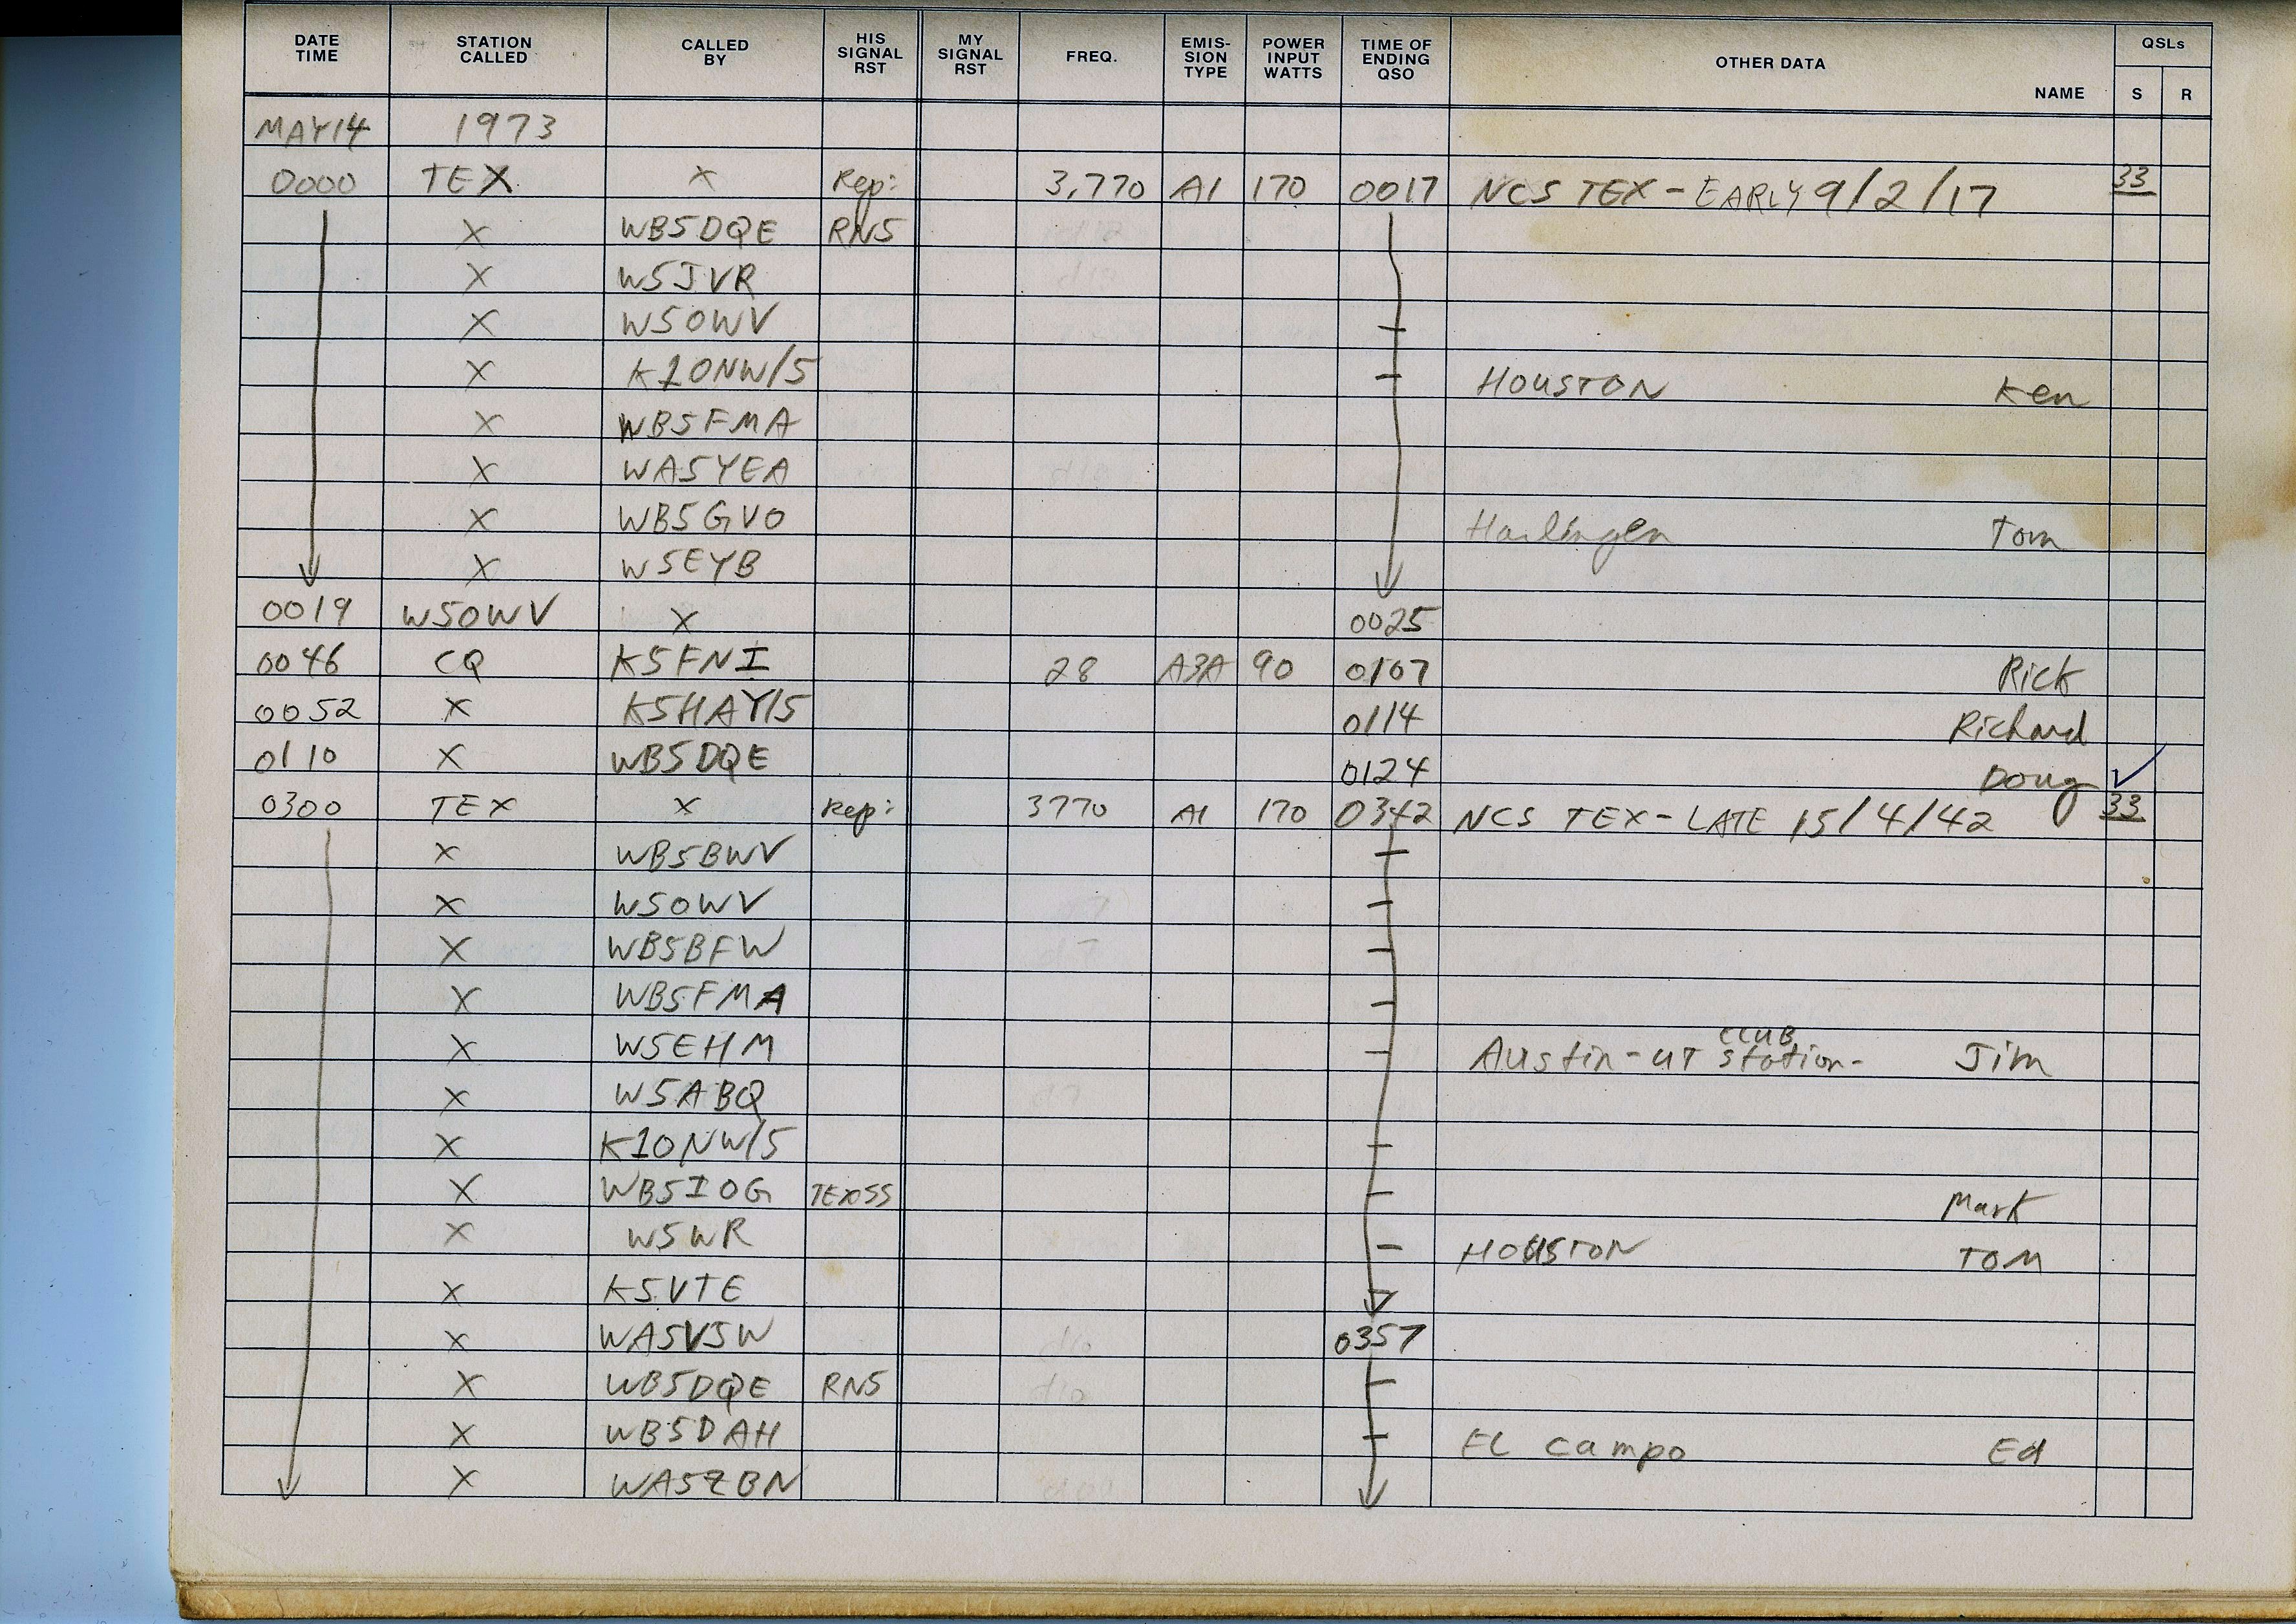 DATE TIME STATION CALLED CALLED BY HIS SIGNAL RST MY SIGNAL RST FREQ. EMIS- SION TYPE POWER INPUT WATTS TIME OF ENDING QSO OTHER DATA NAME QSLs S R
MAY 14 1973
0000 TEX X Rep: 3,770 A1 170 0017 NCS TEX - EARLY 9/2/17 33
X WB5DQE RN5
X W5JVR
X W5OWV
X K1ONW/5 HOUSTON Ken
X WB5FMA
X WA5YEA
X WB5GVO Harlingen Tom
X W5EYB
0019 W5OWV X 0025
0046 CQ K5FNI 28 A3A 90 0107 Rick
0052 X K5HAY/5 0114 Richard
0110 X WB5DQE 0124 Doug ✓
0300 TEX X Rep: 3770 A1 170 0342 NCS TEX - LATE 15/4/42 33
X WB5BWV
X W5OWV
X WB5BFW
X WB5FMA
X W5EHM Austin - UT CLUB station - Jim
X W5ABQ
X K1ONW/5
X WB5IOG TEXSS Mark
X W5WR HOUSTON TOM
X K5VTE
X WA5VJW 0357
X WB5DQE RN5
X WB5DAH EL campo Ed
X WA5ZBN